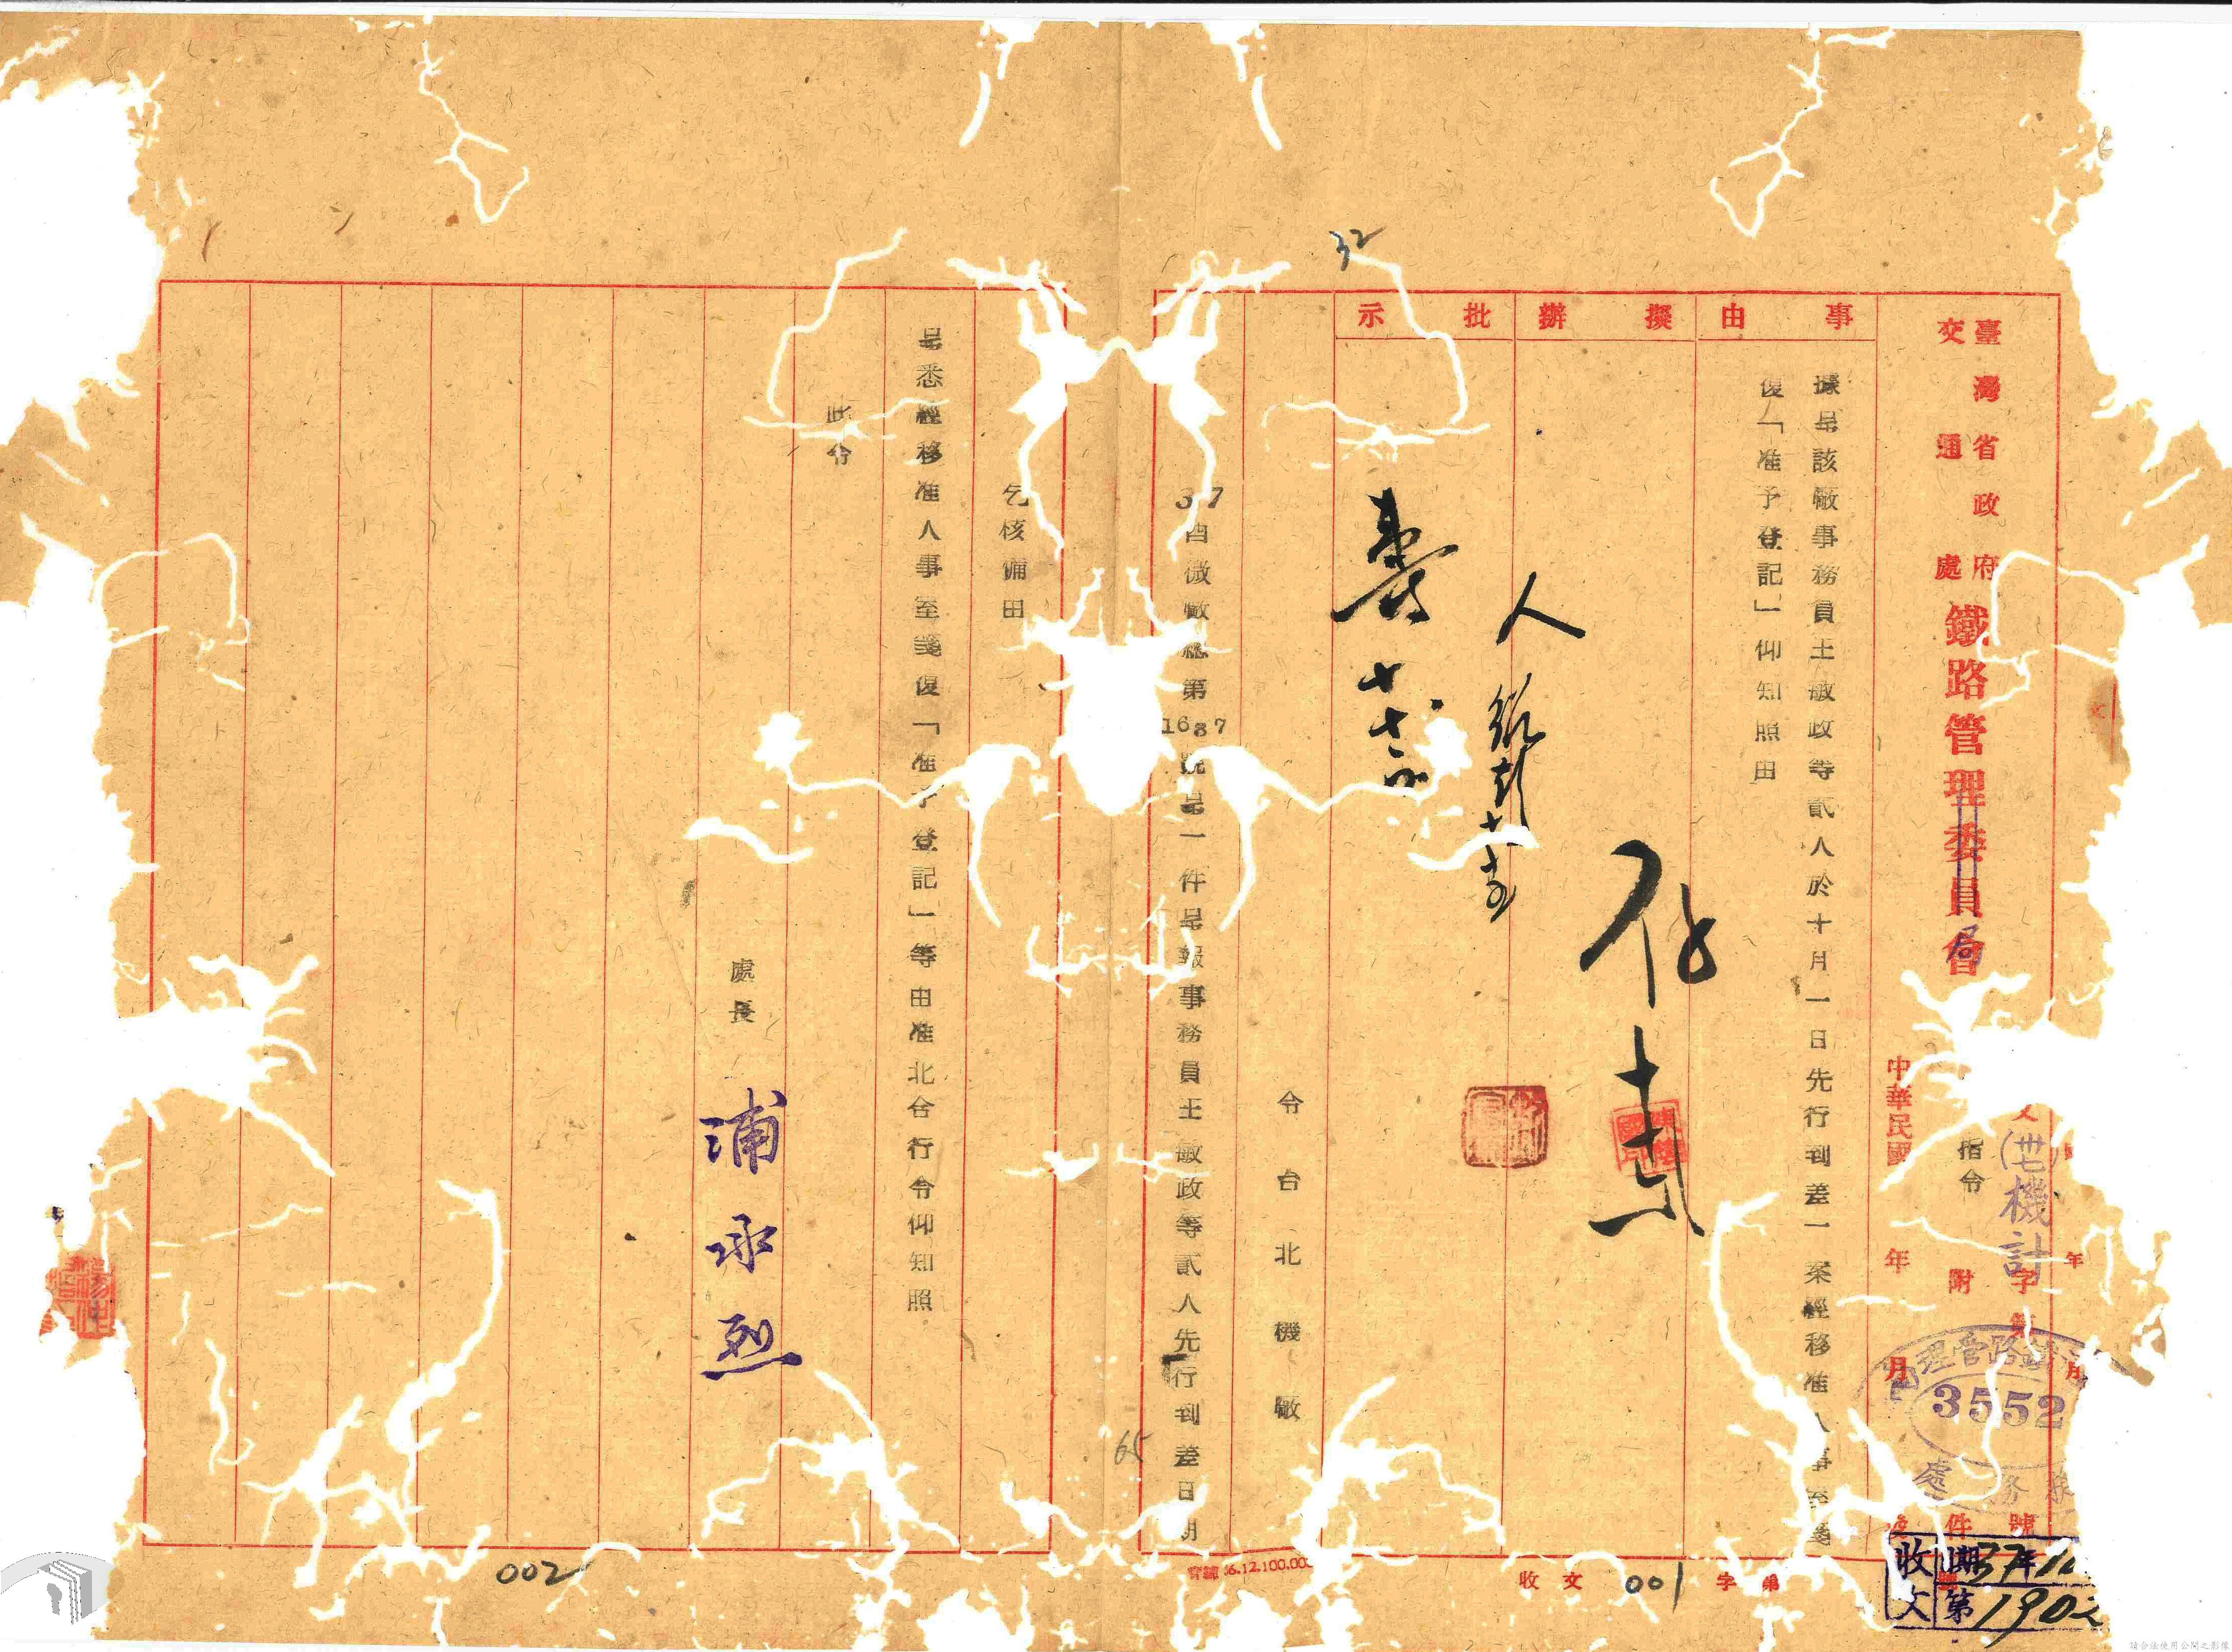 臺灣省政府
交通處
鐵路管理委員會
局
文(卅七)機計字 號
指令
附件
中華民國 年 月
年 月
3552
收文
期37年
第190
事由
擬辦
批示
據呈該廠事務員王敏政等貳人於十月一日先行到差一案經移准人事室箋
復「准予登記」仰知照由
存
人
令台北機廠
37酉微廠總第1687號呈一件呈報事務員王敏政等貳人先行到差日期
乞核備由
呈悉經移准人事室箋復「准予登記」等由准此合行令仰知照
此令
處長 浦承烈
32
65
收文 字第
001
002
6.12.100.00
請合法使用公開之影像